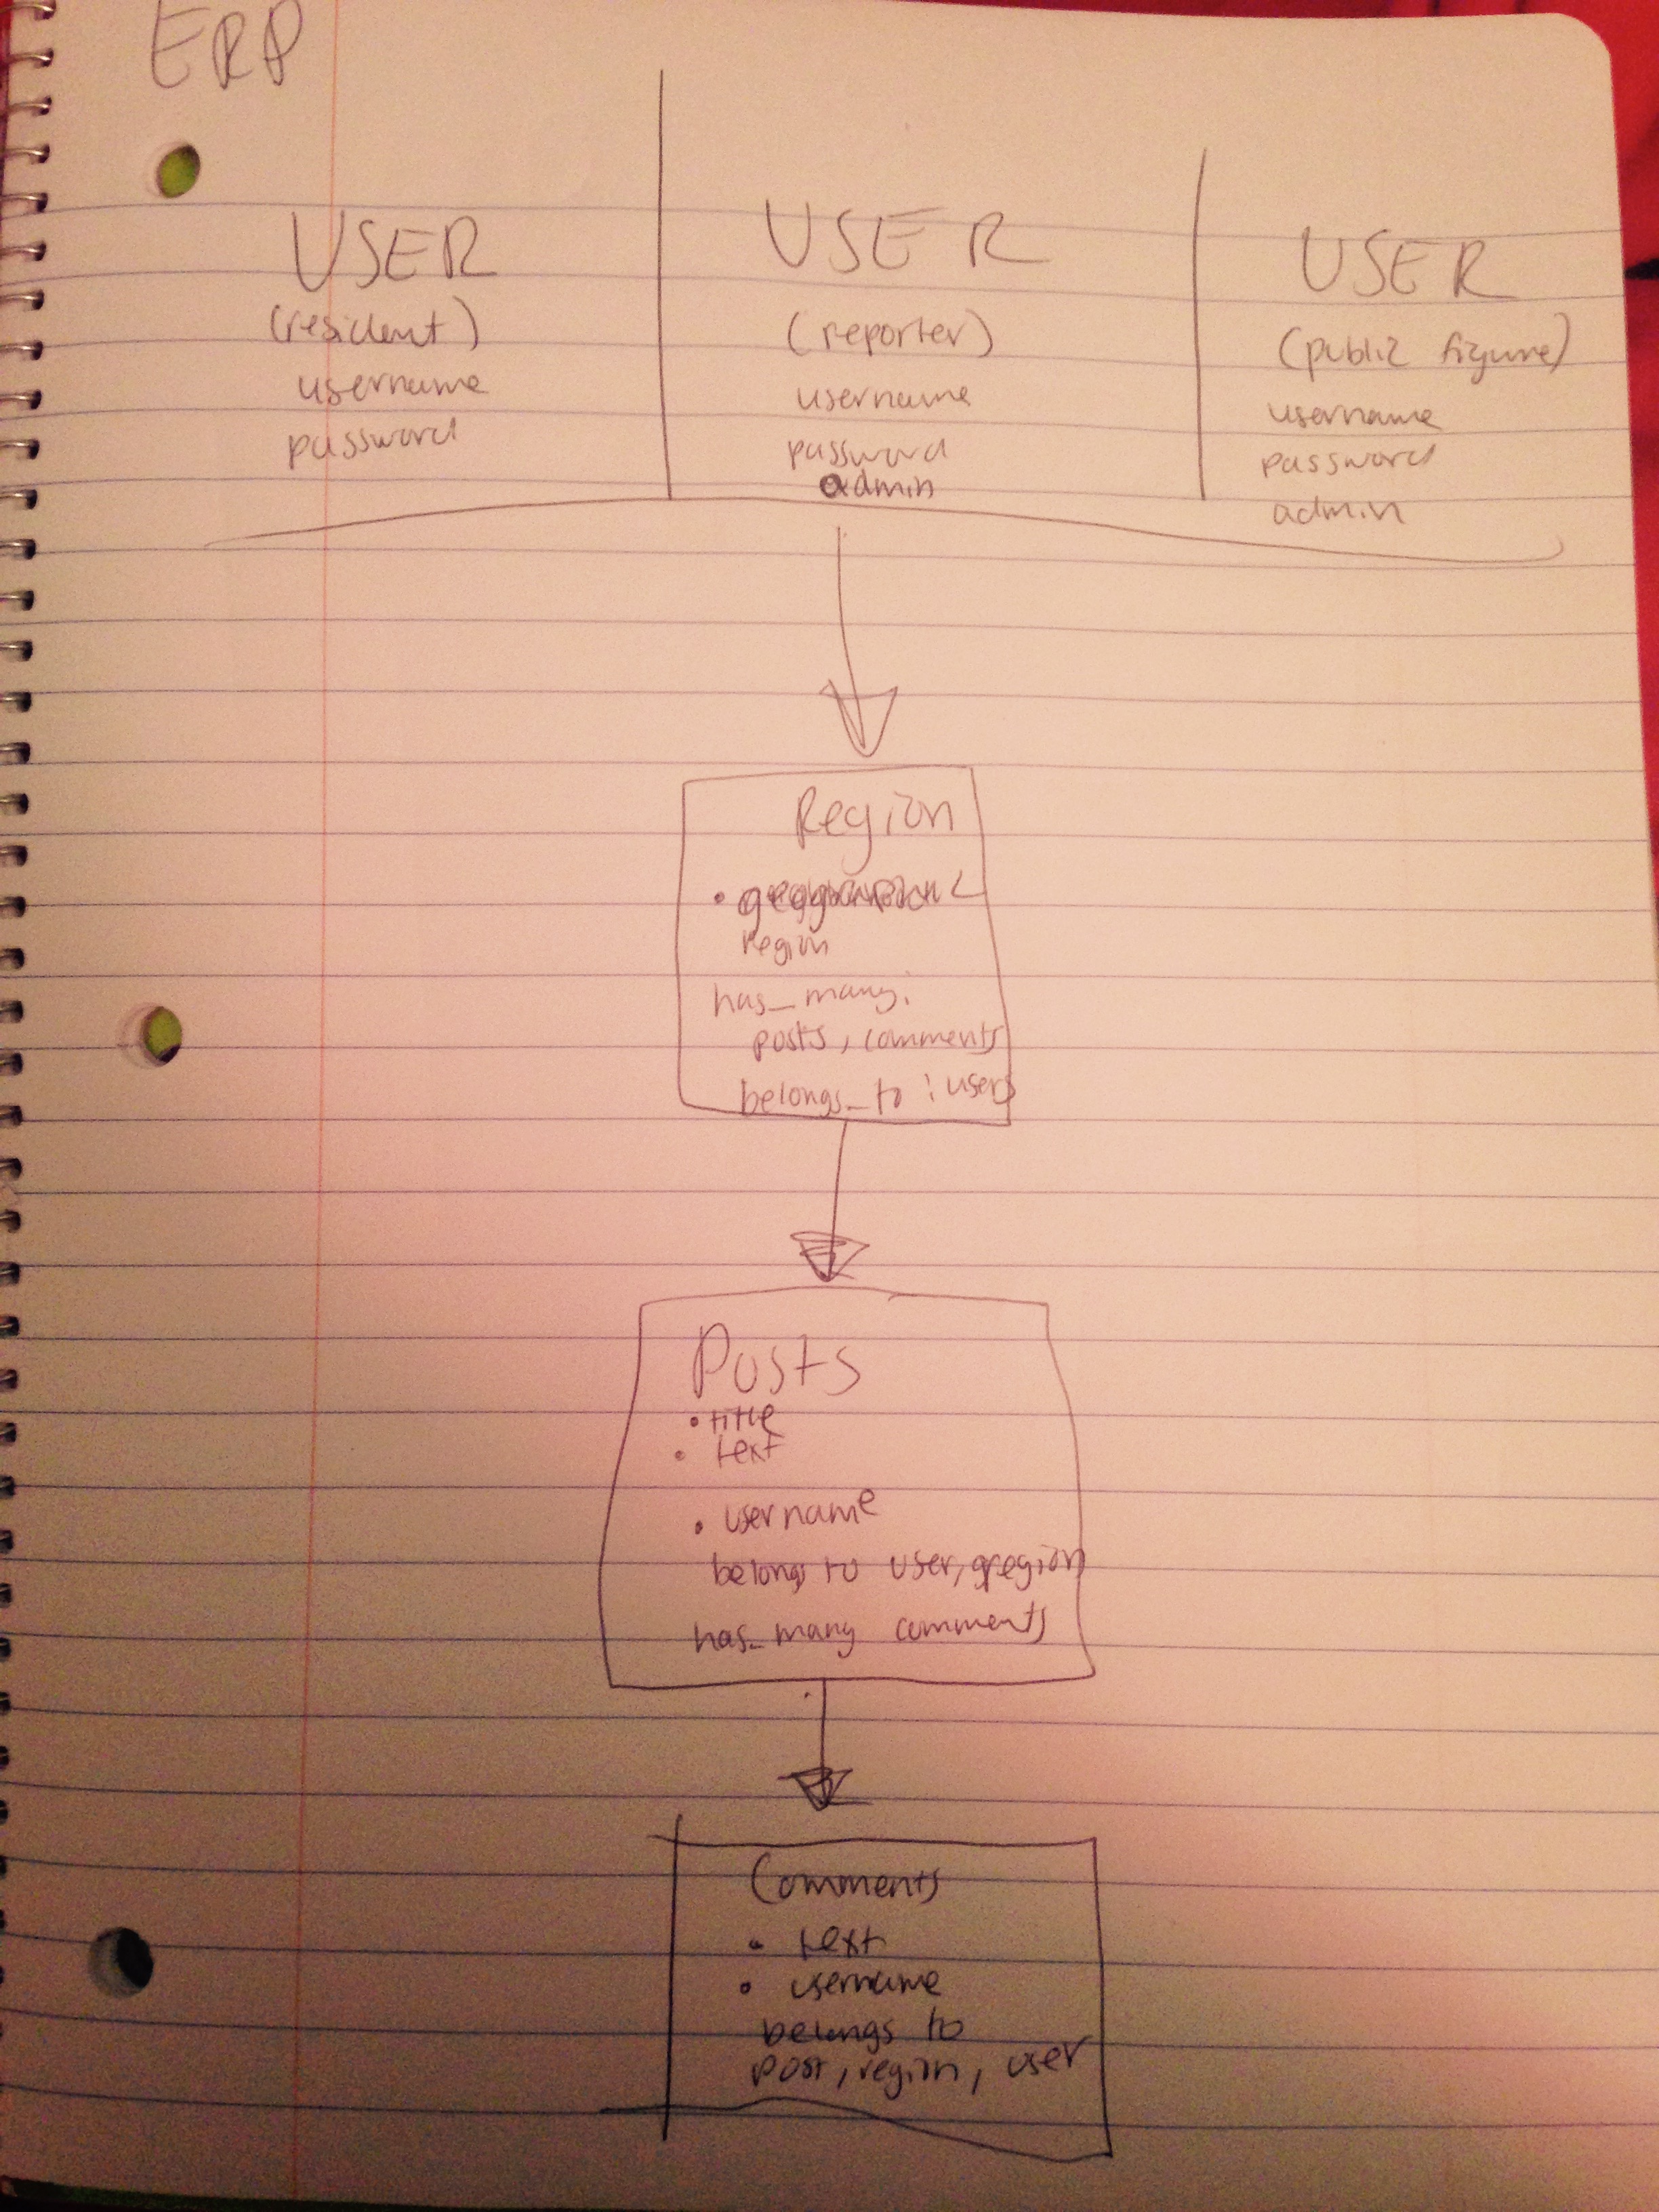 ERP
USER
(resident)
username
password
USER
(reporter)
username
password
admin
USER
(public figure)
username
password
admin
Region
region
has_many:
posts, comments
belongs_to : users
Posts
• title
• text
• username
belongs to user, region
has_many comments
Comments
• text
• username
belongs to
post, region, user